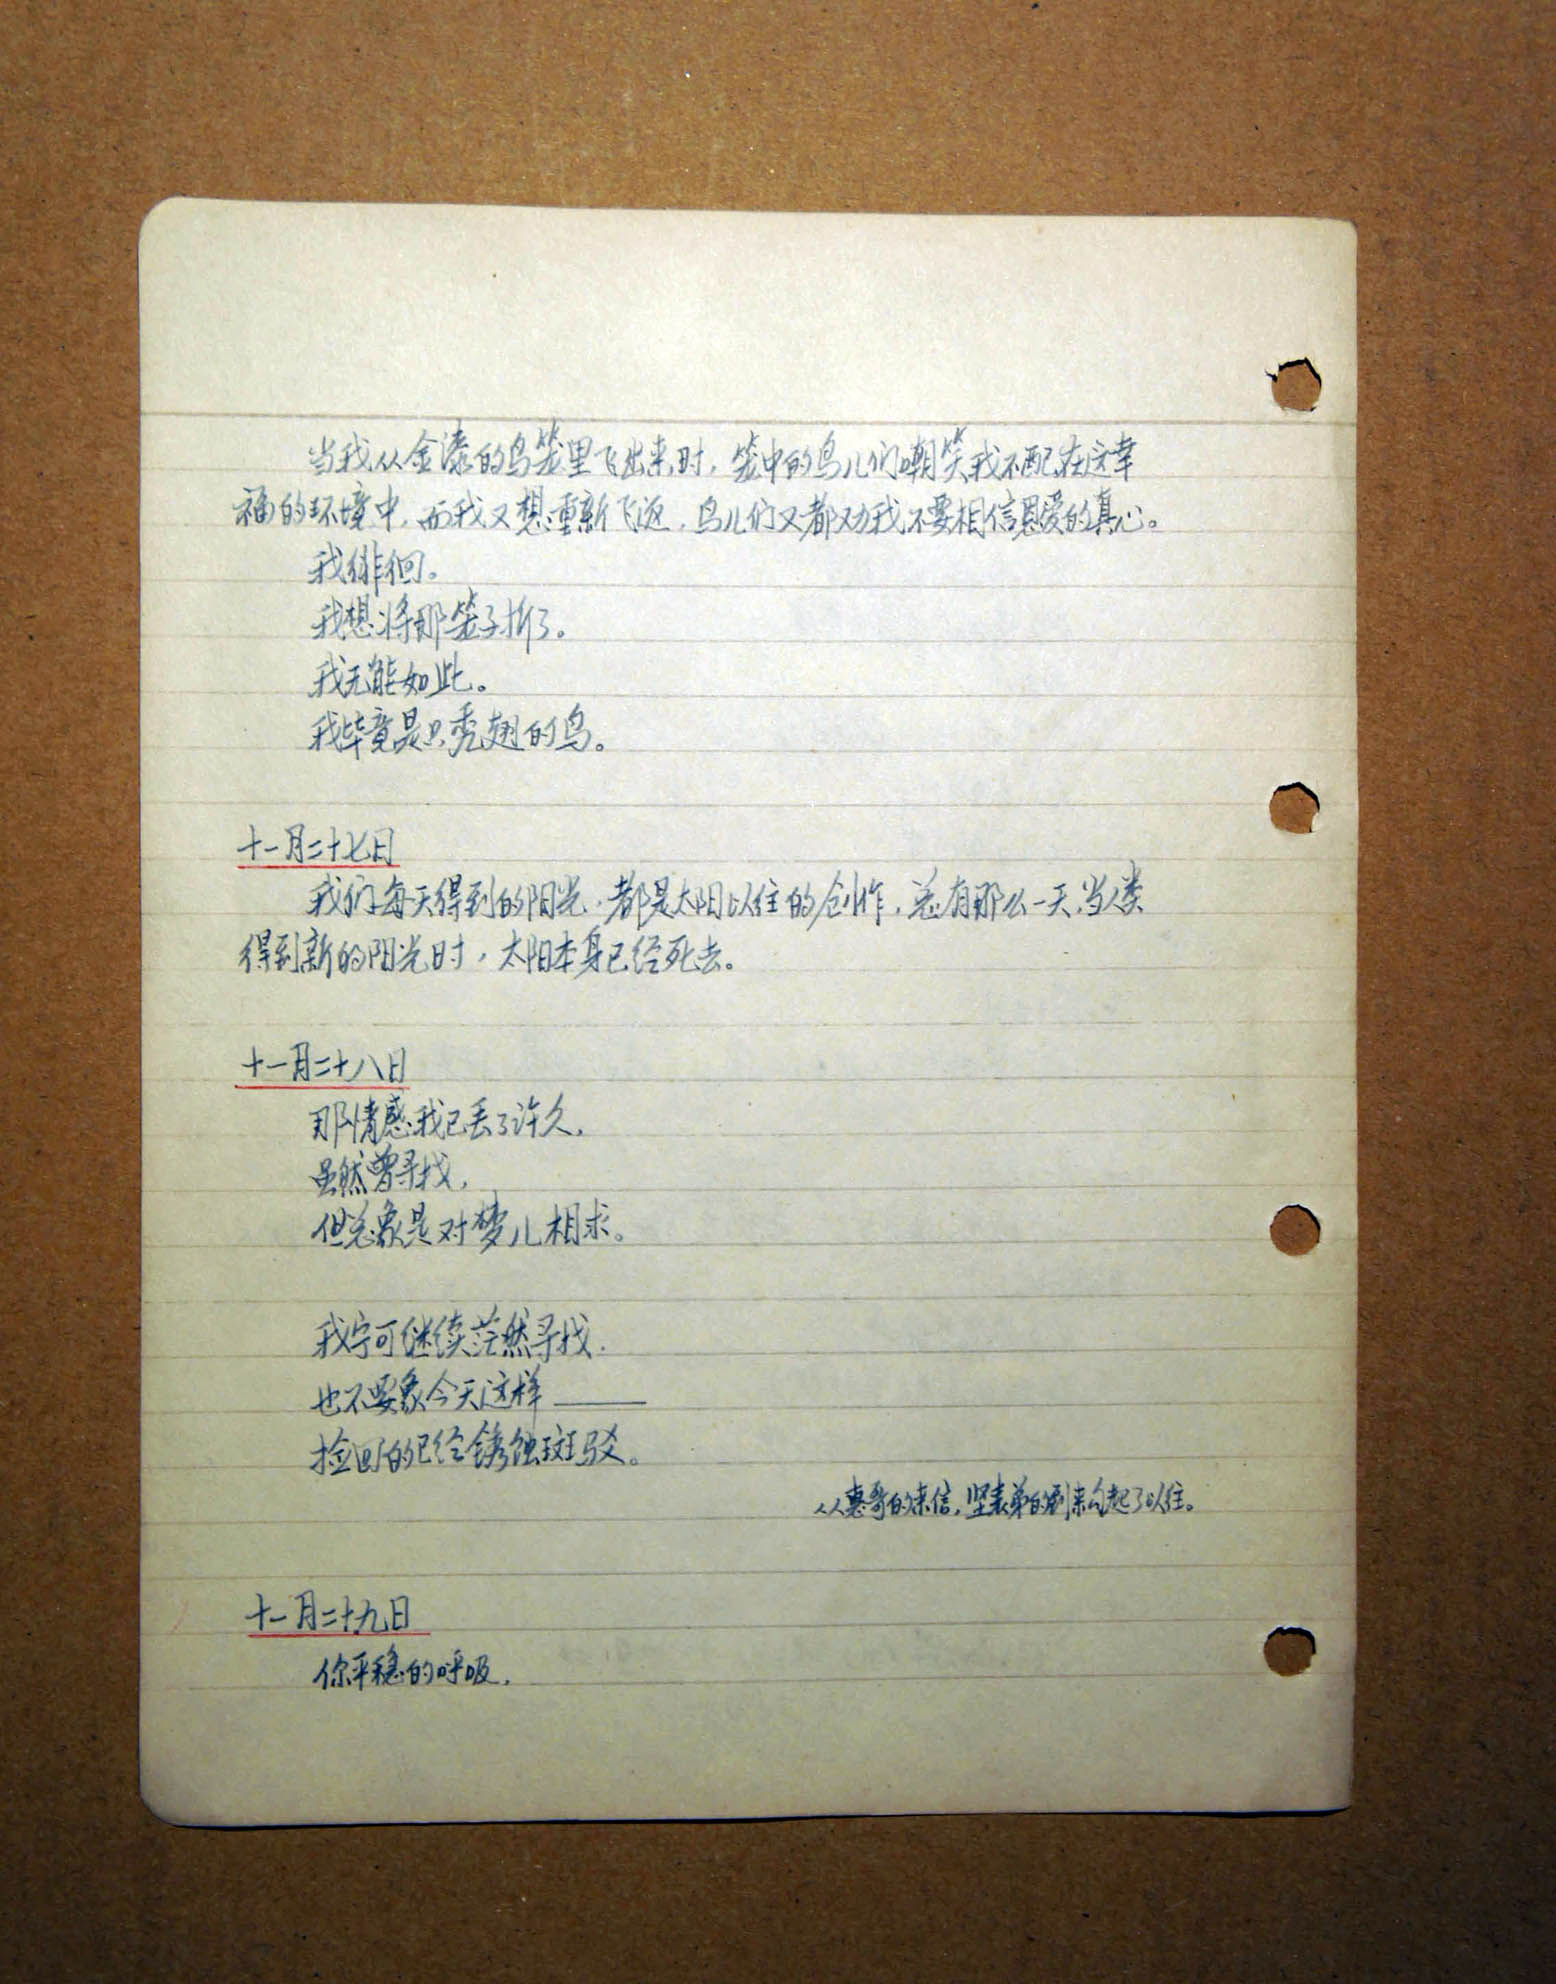 当我从金漆的鸟笼里飞出来时，笼中的鸟儿们嘲笑我不配在这幸
福的环境中，而我又想重新飞返，鸟儿们又都劝我不要相信恩爱的真心。
我徘徊。
我想将那笼子拆了。
我无能如此。
我毕竟是只秃翅的鸟。
十一月二十七日
我们每天得到的阳光，都是太阳以往的创作，总有那么一天，当人类
得到新的阳光时，太阳本身已经死去。
十一月二十八日
那情感我已丢了许久，
虽然曾寻找，
但总象是对梦儿相求。
我宁可继续茫然寻找，
也不要象今天这样——
捡回的已经锈蚀斑驳。
从惠哥的来信，坚表弟的到来勾起了以往。
十一月二十九日
你平稳的呼吸，